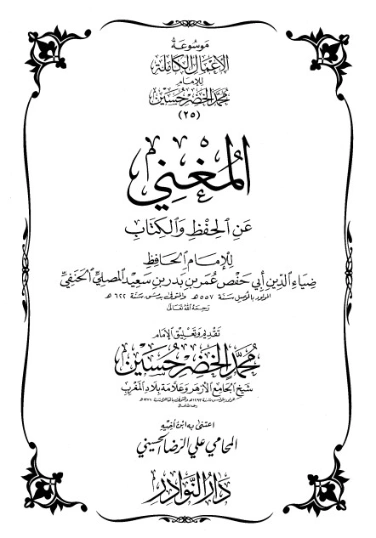 موسوعة
الأعمال الكاملة
للإمام
محمد الخضر حسين
(٢٥)
المغني
عن الحفظ والكتاب
للإمام الحافظ
ضياء الدين أبي حفص عمر بن بدر بن سعيد الموصلي الحنفي
المولود بالموصل سنة ٥٥٧ هـ والمتوفى بدمشق سنة ٦٢٢ هـ
رحمه الله تعالى
تقديم وتعليق الإمام
محمد الخضر حسين
شيخ الجامع الأزهر وعلامة بلاد المغرب
اعتنى به ابن أخيه
المحامي علي الرضا الحسيني
دار النوادر